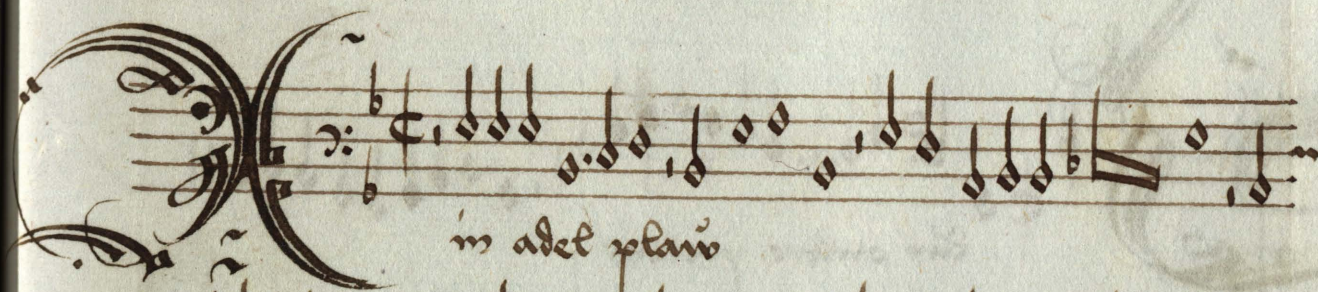 in adel plaw